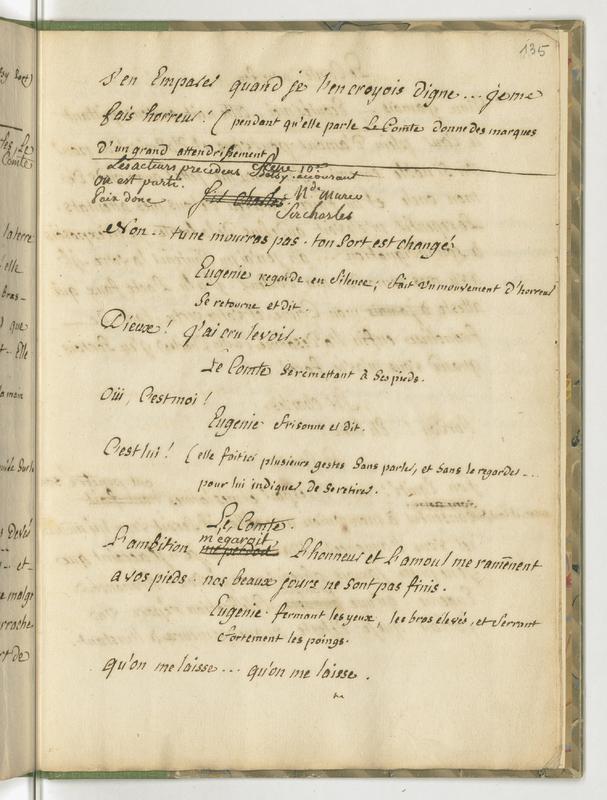 135
s'en Emparer quand je l'en croyois digne... je me
fais horreur! (pendant qu'elle parle Le Comte donne des marques
d'un grand attendrissement)
Les acteurs precedens Scene 10e
Betsy accourant
On est parti.
Sir Charles. Mde Murer
Paix donc
Sir charles
Non.. tu ne mourras pas. ton Sort est changé.
Eugenie regarde en Silence; fait un mouvement d'horreur
Se retourne et dit.
Dieux! j'ai cru le voir
Le Comte se remettant à Ses pieds.
Oüi, C'est moi!
Eugenie frisonne et dit.
C'est lui! (elle fait ici plusieurs gestes Sans parler, et Sans le regarder...
pour lui indiquer de Se retirer.
Le Comte.
m'egaroit
L'ambition me perdoit L'honneur et L'amour me ramènent
a vos pieds. nos beaux jours ne Sont pas finis.
Eugenie fermant les yeux, les bras élevés, et Serrant
fortement les poings.
qu'on me laisse... qu'on me laisse.